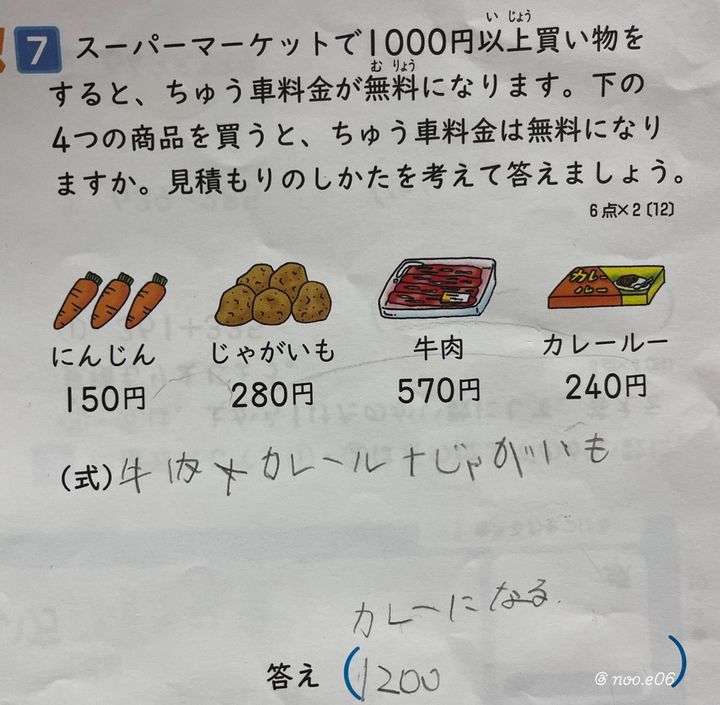 7 スーパーマーケットで1000円以上買い物を
いじょう
すると、ちゅう車料金が無料になります。下の
むりょう
4つの商品を買うと、ちゅう車料金は無料になり
ますか。見積もりのしかたを考えて答えましょう。
6点×2〔12〕
カレー
ルー
にんじん じゃがいも 牛肉 カレールー
150円 280円 570円 240円
(式)牛肉+カレールー+じゃがいも
カレーになる
答え(1200)
@noo.e06